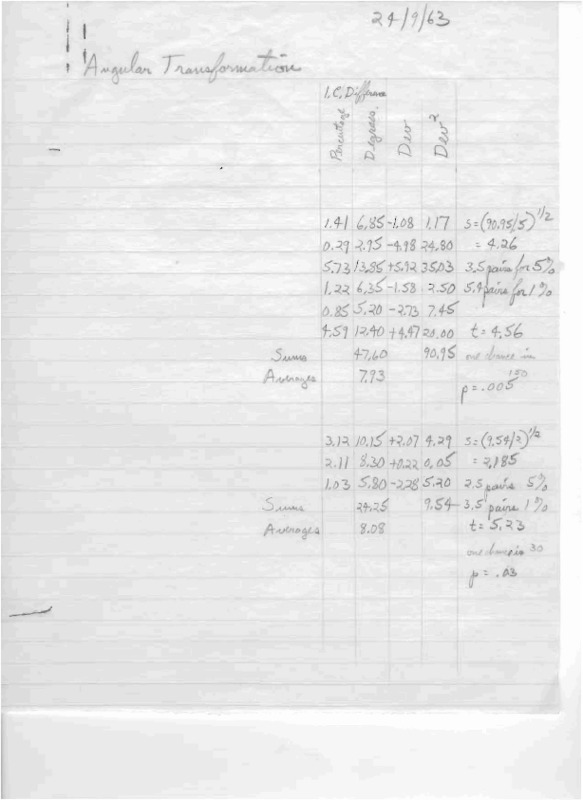 24/9/63
Angular Transformation
I.C. Difference
Percentage Degrees. Dev Dev²
1.41 6.85 -1.08 1.17 s=(90.95/5)^1/2
0.29 2.95 -4.98 24.80 = 4.26
5.73 13.85 +5.92 35.03 3.5 pairs for 5%
1.22 6.35 -1.58 2.50 5.4 pairs for 1%
0.85 5.20 -2.73 7.45
4.59 12.40 +4.47 20.00 t = 4.56
Sums 47.60 90.95 one chance in
Averages 7.93 150
p = .005
3.12 10.15 +2.07 4.29 s=(9.54/2)^1/2
2.11 8.30 +0.22 0.05 = 2.185
1.03 5.80 -2.28 5.20 2.5 pairs 5%
Sums 24.25 9.54 3.5 pairs 1%
Averages 8.08 t = 5.23
one chance in 30
p = .03